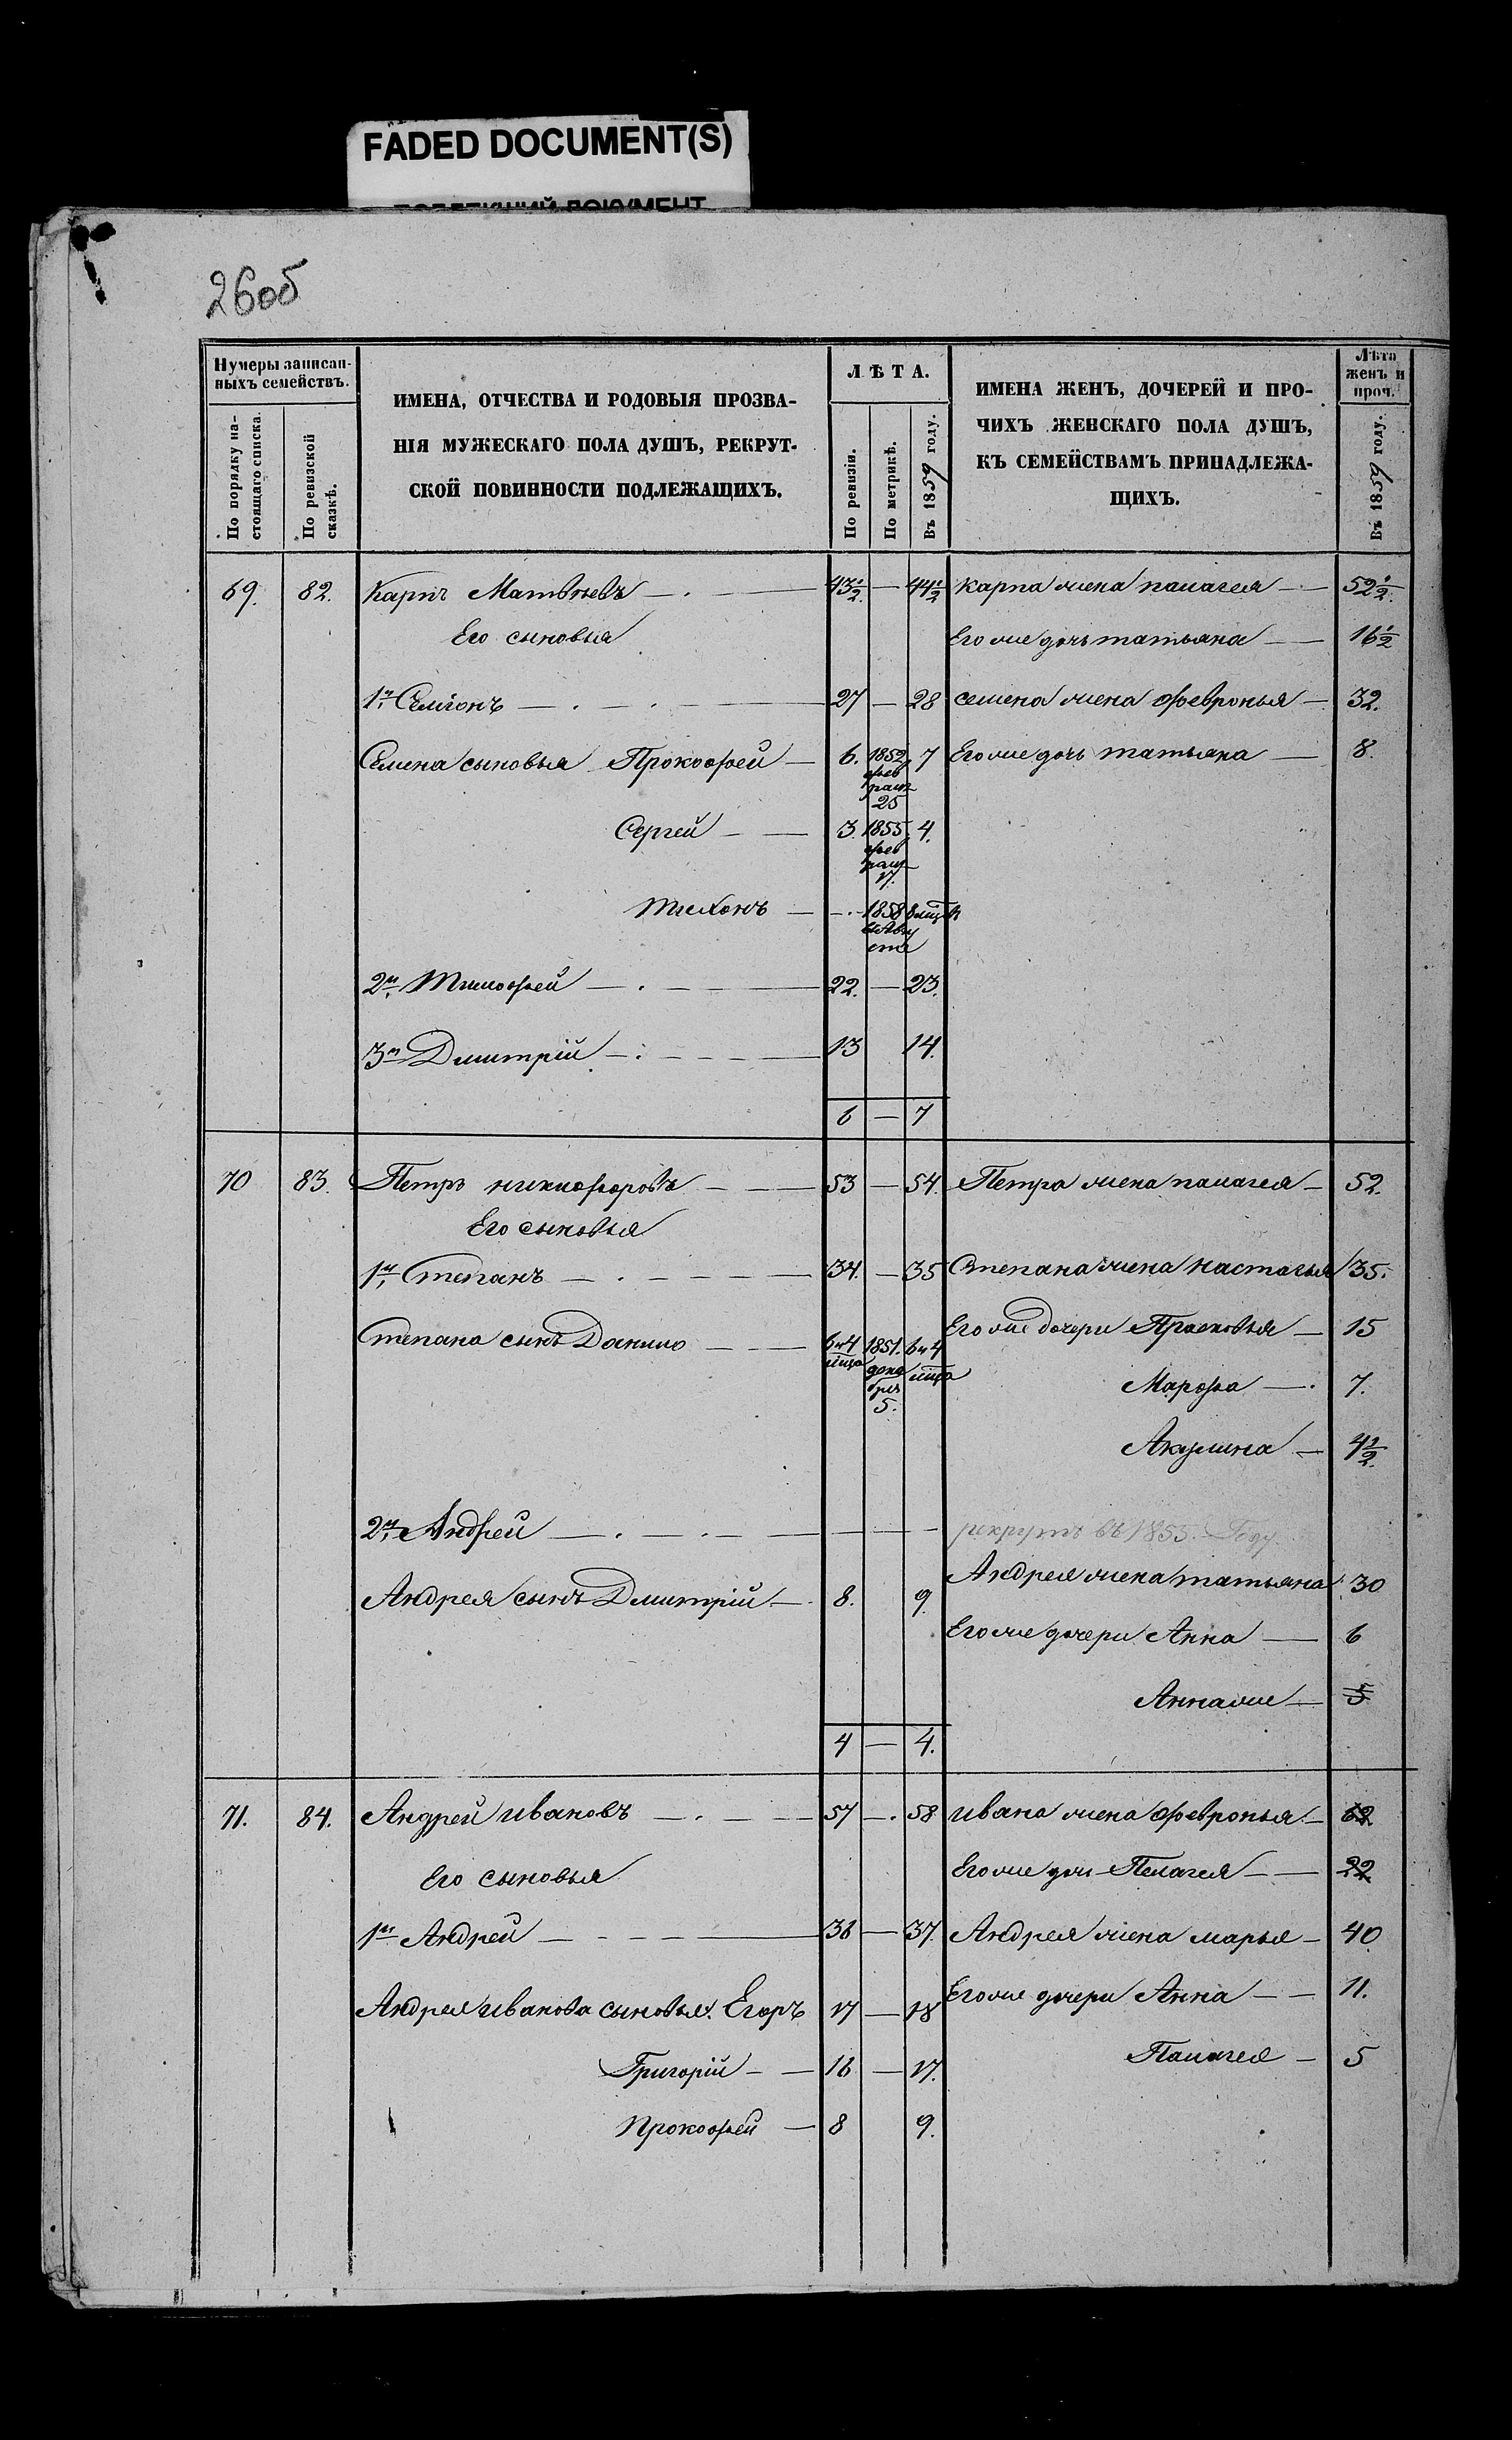 FADED DOCUMENT(S)
26об
Нумеры записан-
ныхъ семействъ.
По порядку на-
стоящаго списка.
По ревизской
сказкѣ.
ИМЕНА, ОТЧЕСТВА И РОДОВЫЯ ПРОЗВА-
НІЯ МУЖЕСКАГО ПОЛА ДУШЪ, РЕКРУТ-
СКОЙ ПОВИННОСТИ ПОДЛЕЖАЩИХЪ.
ЛѢТА.
По ревизіи.
По метрикѣ.
Въ 1859 году.
ИМЕНА ЖЕНЪ, ДОЧЕРЕЙ И ПРО-
ЧИХЪ ЖЕНСКАГО ПОЛА ДУШЪ,
КЪ СЕМЕЙСТВАМЪ ПРИНАДЛЕЖА-
ЩИХЪ.
Лѣта
женъ и
проч.
Въ 1859 году.
69. 82. Карпъ Матвѣевъ 43½ — 44½ карпа жена палагея — 52½
Его сыновья Его же дочь татьяна — 16½
1й Семіонъ 27 — 28 семена жена февронья — 32.
Семена сыновья Прокофей — 6. 1852 фев раля 25 7 Его же дочь татьяна — 8.
Сергей — 3. 1855 фев раля 17. 4.
тихонъ — 1858
2й Тимофей 22. — 23.
3й Дмитрій 13 14.
6 — 7
70 83. Петръ никифоровъ 53 — 54. Петра жена палагея — 52.
Его сыновья
1й Степанъ 34. — 35 Степана жена настасья 35.
Степана сынъ Данило 6 и 4 мѣсца 1851. дека бря 5. 6 и 4 мѣсца Его же дочери Прасковья — 15
Марфа — 7.
Акулина — 4½
2й Андрей — рекрутъ въ 1855. Году
Андрея сынъ Дмитрій 8. 9. Андрея жена татьяна 30
Его же дочери Анна — 6
Анна же — 5
4 — 4.
71. 84. Андрей ивановъ 57 — 58 ивана жена февронья — 62
Его сыновья Его же дочь Пелагея — 22
1й Андрей 36 — 37. Андрея жена марья — 40
Андрея иванова сыновья. Егоръ 17 — 18 Его же дочери Анна — 11.
Григорій — 16 — 17. Палагея — 5
Прокофей — 8 9.